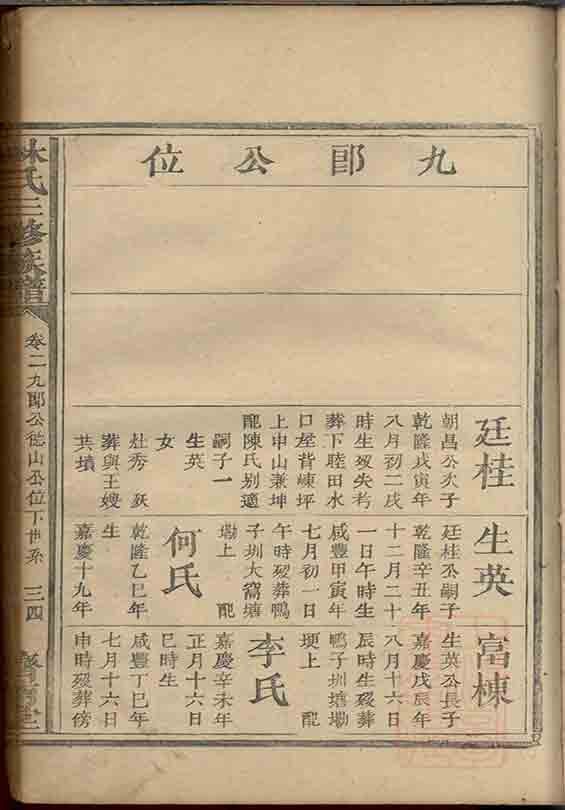 九郎公位
廷桂
朝昌公次子
乾隆戊寅年
八月初二戌
時生歿失考
葬下睦田水
口屋背崠坪
上申山兼坤
配陳氏别適
嗣子一
生英
女
灶秀 歿
葬與王嫂
共墳
生英
廷桂公嗣子
乾隆辛丑年
十二月二十
一日午時生
咸豐甲寅年
七月初一日
午時歿葬鴨
子圳大窩塘
塝上 配
何氏
乾隆乙巳年
生
嘉慶十九年
富棟
生英公長子
嘉慶戊辰年
八月十六日
辰時生歿葬
鴨子圳塘塝
埂上 配
李氏
嘉慶辛未年
正月十六日
巳時生
咸豐丁巳年
七月十六日
申時歿葬傍
林氏三修族譜
卷二九郎公從山公位下世系
三四
堂